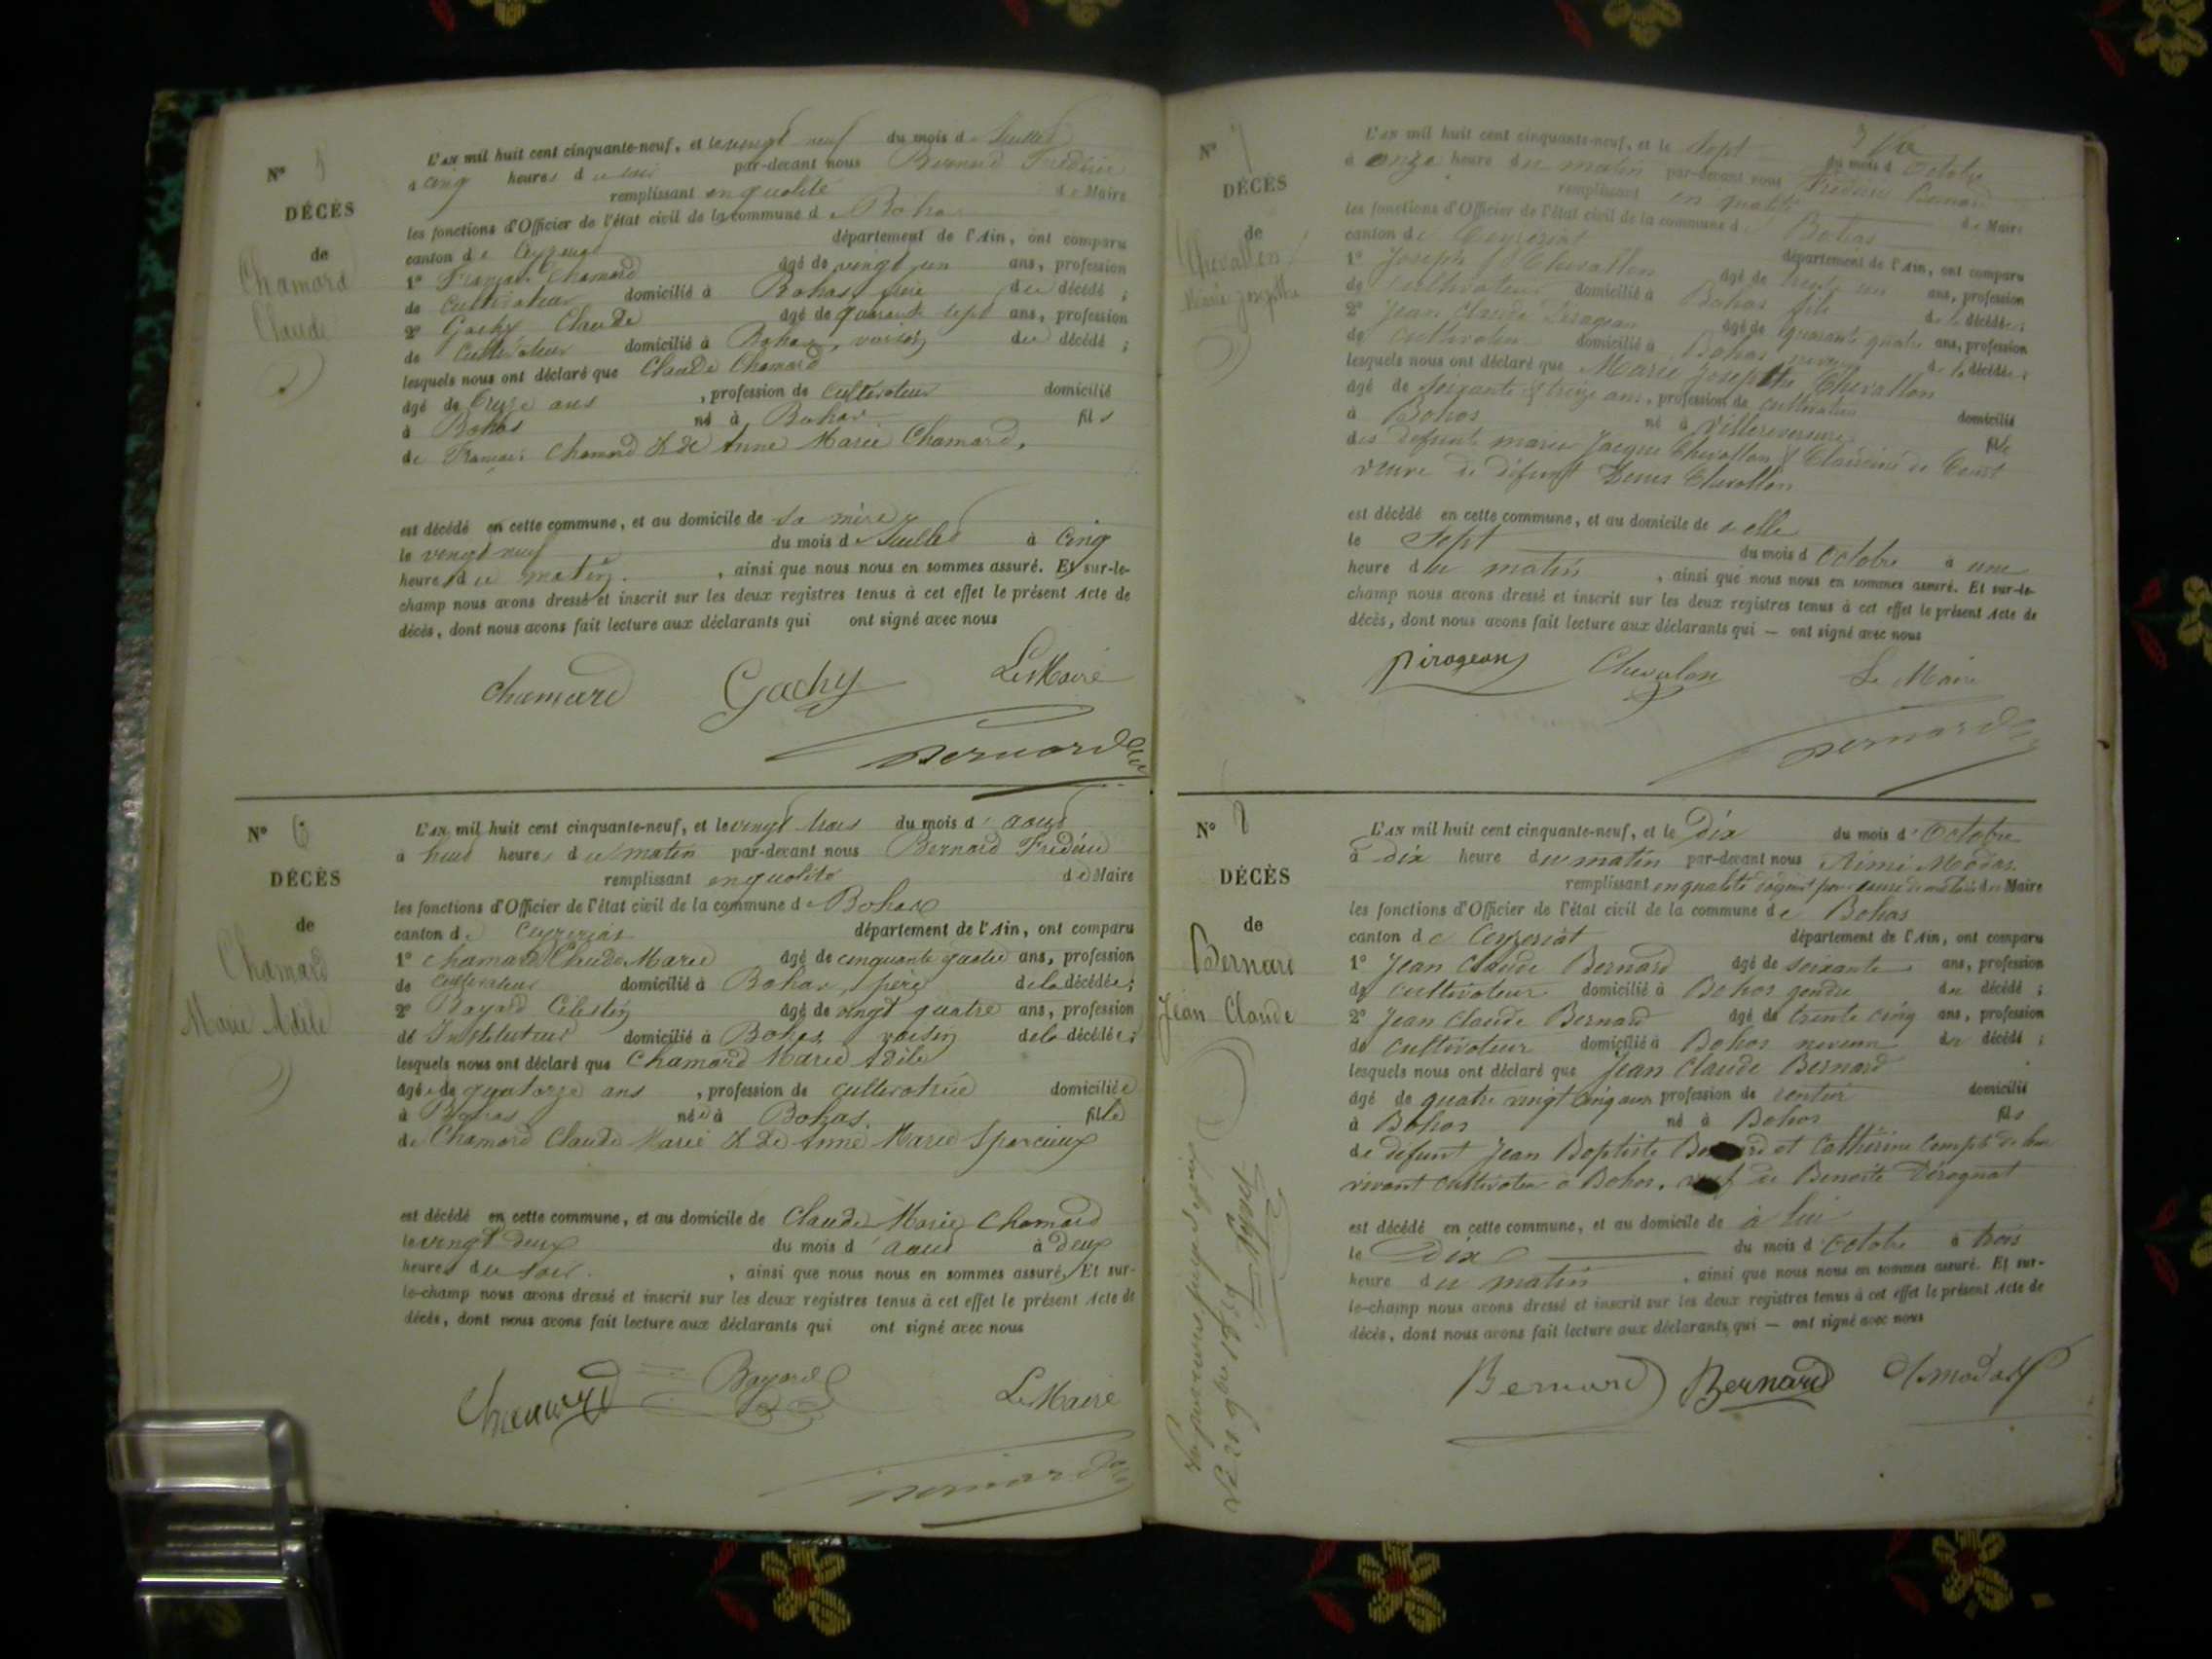 N° 5
DÉCÈS
de
Chamard
Claude
L'AN mil huit cent cinquante-neuf, et le vingt neuf du mois de Juillet
à cinq heures du soir par-devant nous Bernard Frédéric
remplissant en qualité de Maire
les fonctions d'Officier de l'état civil de la commune de Bohas
canton de Ceyzeriat département de l'Ain, ont comparu
1° François Chamard âgé de vingt un ans, profession
de cultivateur domicilié à Bohas, frère du décédé ;
2° Gachy Claude âgé de quarante sept ans, profession
de cultivateur domicilié à Bohas, voisin du décédé ;
lesquels nous ont déclaré que Claude Chamard
âgé de treize ans , profession de cultivateur domicilié
à Bohas né à Bohas fils
de François Chamard & de Anne Marie Chamard,
est décédé en cette commune, et au domicile de sa mère
le vingt neuf du mois de Juillet à cinq
heures du matin. , ainsi que nous nous en sommes assuré. Et sur-le-
champ nous avons dressé et inscrit sur les deux registres tenus à cet effet le présent Acte de
décès, dont nous avons fait lecture aux déclarants qui ont signé avec nous
Chamard Gachy Le Maire
Bernard
N° 6
DÉCÈS
de
Chamard
Marie Adèle
L'AN mil huit cent cinquante-neuf, et le vingt trois du mois d'août
à huit heures du matin par-devant nous Bernard Frédéric
remplissant en qualité de Maire
les fonctions d'Officier de l'état civil de la commune de Bohas
canton de Ceyzeriat département de l'Ain, ont comparu
1° Chamard Claude Marie âgé de cinquante quatre ans, profession
de cultivateur domicilié à Bohas, père de la décédée ;
2° Bayard Célestin âgé de vingt quatre ans, profession
de Instituteur domicilié à Bohas, voisin de la décédée ;
lesquels nous ont déclaré que Chamard Marie Adèle
âgée de quatorze ans , profession de cultivatrice domiciliée
à Bohas née à Bohas. fille
de Chamard Claude Marie & de Anne Marie Sparcieux
est décédé en cette commune, et au domicile de Claude Marie Chamard
le vingt deux du mois d'août à deux
heures du soir. , ainsi que nous nous en sommes assuré. Et sur-
le-champ nous avons dressé et inscrit sur les deux registres tenus à cet effet le présent Acte de
décès, dont nous avons fait lecture aux déclarants qui ont signé avec nous
Chamard Bayard Le Maire
Bernard
N° 7
DÉCÈS
de
Chevallon
Marie Josephte
L'AN mil huit cent cinquante-neuf, et le sept du mois d'octobre
à onze heure du matin par-devant nous Frédéric Bernard
remplissant en qualité de Maire
les fonctions d'Officier de l'état civil de la commune de Bohas
canton de Ceyzeriat département de l'Ain, ont comparu
1° Joseph Chevallon âgé de trente un ans, profession
de cultivateur domicilié à Bohas fils de la décédée ;
2° Jean Claude Pirogeon âgé de quarante quatre ans, profession
de cultivateur domicilié à Bohas neveu de la décédée ;
lesquels nous ont déclaré que Marie Josephte Chevallon
âgé de soixante & treize ans, profession de cultivatrice domicilié
à Bohas né à Villereversure fille
des defunts mariés Jacques Chevallon & Claudine
veuve de défunt Chevallon
est décédé en cette commune, et au domicile de à elle
le sept du mois d'octobre à une
heure du matin , ainsi que nous nous en sommes assuré. Et sur-le-
champ nous avons dressé et inscrit sur les deux registres tenus à cet effet le présent Acte de
décès, dont nous avons fait lecture aux déclarants qui — ont signé avec nous
Pirogeon Chevalon Le Maire
Bernard
N° 8
DÉCÈS
de
Bernard
Jean Claude
L'AN mil huit cent cinquante-neuf, et le Dix du mois d'octobre
à dix heure du matin par-devant nous Rémi Modas
remplissant en qualité d'adjoint pour cause de maladie du Maire
les fonctions d'Officier de l'état civil de la commune de Bohas
canton de Ceyzeriat département de l'Ain, ont comparu
1° Jean Claude Bernard âgé de soixante ans, profession
de cultivateur domicilié à Bohas gendre du décédé ;
2° Jean Claude Bernard âgé de trente cinq ans, profession
de cultivateur domicilié à Bohas neveu du décédé ;
lesquels nous ont déclaré que Jean Claude Bernard
âgé de quatre vingt cinq ans profession de rentier domicilié
à Bohas né à Bohas fils
de défunt Jean Baptiste Bernard et Catherine Compte de leur
vivant cultivateur à Bohas, veuf de Benoite Pérognat
est décédé en cette commune, et au domicile de à lui
le Dix du mois d'octobre à trois
heure du matin , ainsi que nous nous en sommes assuré. Et sur-
le-champ nous avons dressé et inscrit sur les deux registres tenus à cet effet le présent Acte de
décès, dont nous avons fait lecture aux déclarants qui — ont signé avec nous
Bernard Bernard Modas